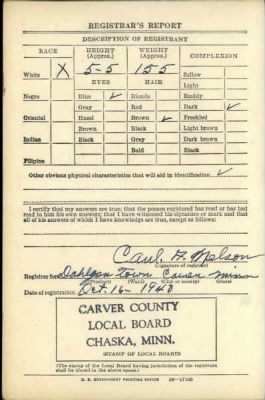 REGISTRAR'S REPORT
DESCRIPTION OF REGISTRANT
RACE HEIGHT (Approx.) WEIGHT (Approx.) COMPLEXION
White X 5-5 155 Sallow
EYES HAIR Light
Negro Blue ✓ Blonde Ruddy
Gray Red Dark ✓
Oriental Hazel Brown ✓ Freckled
Brown Black Light brown
Indian Black Gray Dark brown
Bald Black
Filipino
Other obvious physical characteristics that will aid in identification ✓
I certify that my answers are true; that the person registered has read or has had
read to him his own answers; that I have witnessed his signature or mark and that
all of his answers of which I have knowledge are true, except as follows:
Carl Nelson
Signature of registrar
Registrar for Dahlgren Town Carver Minn
(Precinct) (Ward) (City or county) (State)
Date of registration Oct. 16 - 1940
CARVER COUNTY
LOCAL BOARD
CHASKA, MINN.
STAMP OF LOCAL BOARD
(The stamp of the Local Board having jurisdiction of the registrant
shall be placed in the above space.)
U. S. GOVERNMENT PRINTING OFFICE